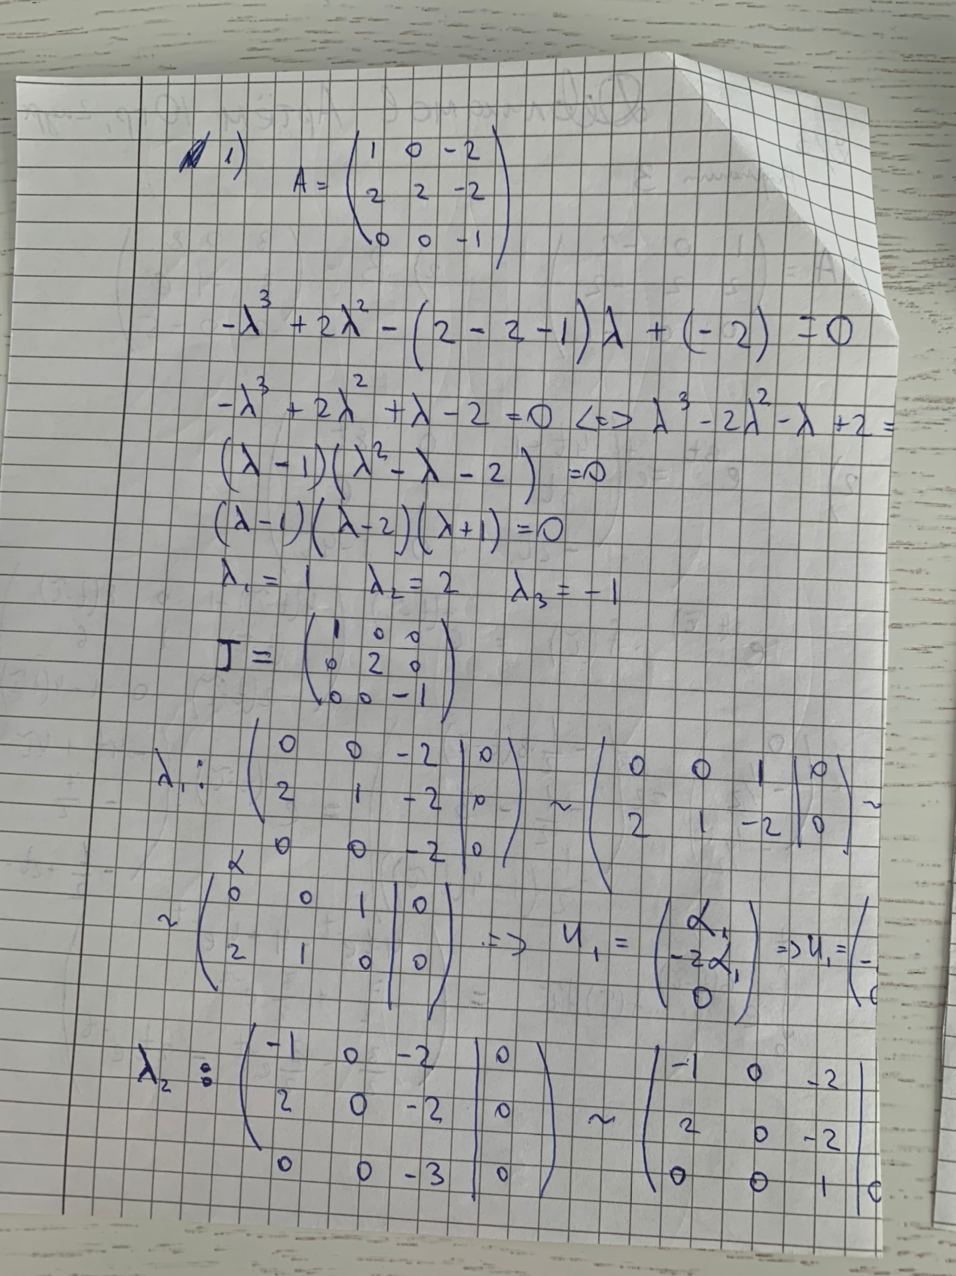 1) A = ( 1 0 -2
2 2 -2
0 0 -1 )
-λ³ + 2λ² - (2 - 2 - 1)λ + (-2) = 0
-λ³ + 2λ² + λ - 2 = 0 <=> λ³ - 2λ² - λ + 2 =
(λ - 1)(λ² - λ - 2) = 0
(λ - 1)(λ - 2)(λ + 1) = 0
λ₁ = 1 λ₂ = 2 λ₃ = -1
J = ( 1 0 0
0 2 0
0 0 -1 )
λ₁: ( 0 0 -2 | 0
2 1 -2 | 0
0 0 -2 | 0 ) ~ ( 0 0 1 | 0
2 1 -2 | 0 ) ~
α
~ ( 0 0 1 | 0
2 1 0 | 0 ) => u₁ = ( α₁
-2α₁
0 ) => u₁ = (
-
λ₂: ( -1 0 -2 | 0
2 0 -2 | 0
0 0 -3 | 0 ) ~ ( -1 0 -2 |
2 0 -2 |
0 0 1 |